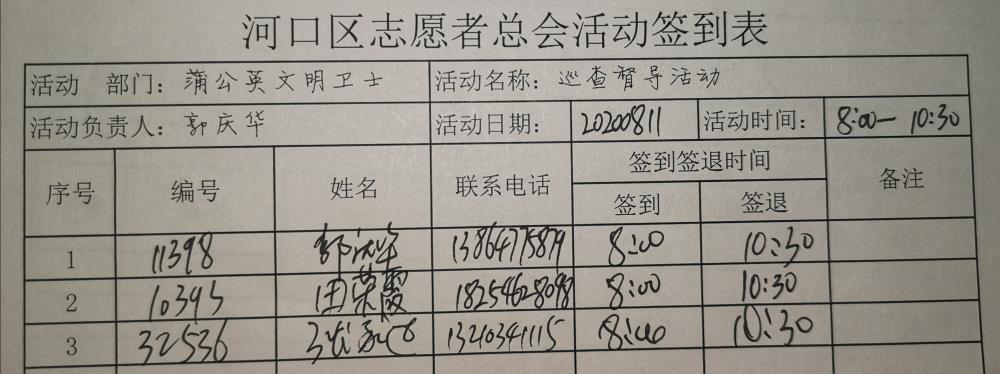 河口区志愿者总会活动签到表
活动 部门：蒲公英文明卫士 活动名称：巡查督导活动
活动负责人：郭庆华 活动日期： 20200811 活动时间： 8:00— 10:30
序号 编号 姓名 联系电话 签到签退时间 备注
签到 签退
1 11398 13864775879 8:00 10:30
2 10395 田荣霞 18254628098 8:00 10:30
3 32536 13210341115 8:00 10:30